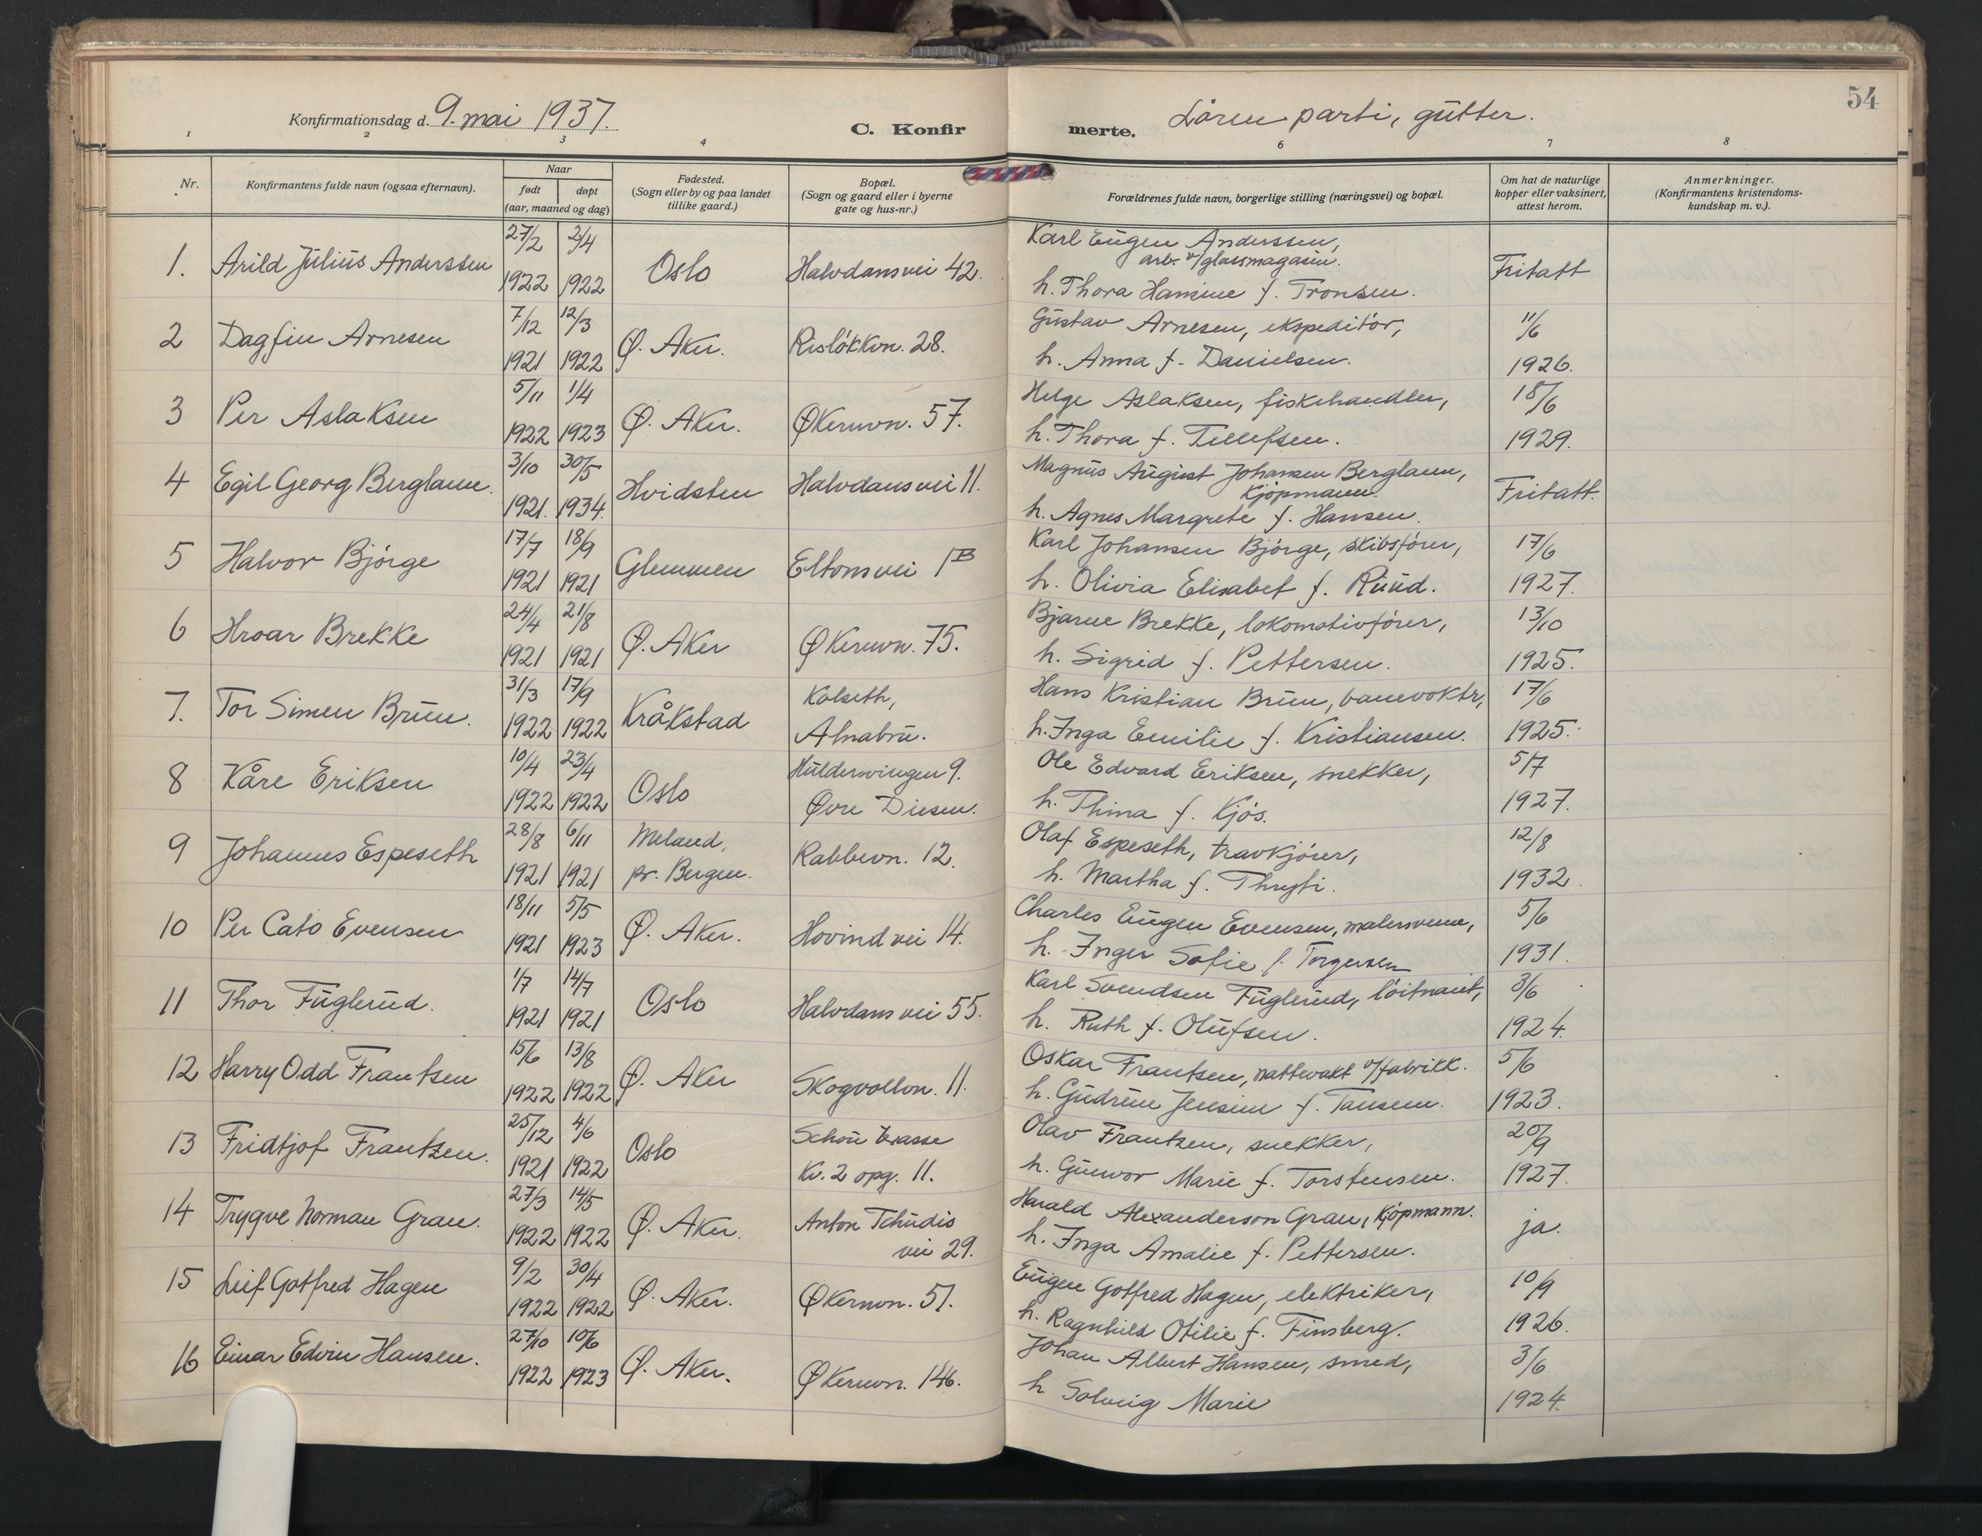 54
Konfirmationsdag d. 9. mai 1937.
C. Konfirmerte.
Løren parti, gutter.
1 2 3 4 6 7 8
Nr.
Konfirmantens fulde navn (ogsaa efternavn).
Naar
født
døpt
(aar, maaned og dag)
Fødested.
(Sogn eller by og paa landet
tillike gaard.)
Bopæl.
(Sogn og gaard eller i byerne
gate og hus-nr.)
Forældrenes fulde navn, borgerlige stilling (næringsvei) og bopæl.
Om hat de naturlige
kopper eller vaksinert,
attest herom.
Anmerkninger.
(Konfirmantens kristendoms-
kundskap m. v.).
1. Arild Julius Anderssen 27/2 1922 2/4 1922 Oslo Halvdansvei 42.
Karl Eugen Anderssen,
arb. v/glassmagasin.
h. Thora Hansine f. Tronsen.
Fritatt
2 Dagfin Arnesen 7/12 1921 12/3 1922 Ø. Aker. Risløkkvn. 28.
Gustav Arnesen, ekspeditør,
h. Anna f. Danielsen.
11/6 1926.
3 Per Aslaksen 5/11 1922 1/4 1923 Ø. Aker. Økernvn. 57.
Helge Aslaksen, fiskehandler,
h. Thora f. Tellefsen.
18/6 1929.
4 Egil Georg Berglann. 3/10 1921. 30/5 1934. Hvidsten Halvdansvei 11.
Magnus August Johansen Berglann,
Kjøpmann.
h. Agnes Margrete f. Hansen.
Fritatt.
5 Halvor Bjørge 17/7 1921 18/9 1921 Glemmen Eltonsvei 1B
Karl Johansen Bjørge, skibsfører,
h. Olivia Elisabet f. Ruud.
17/6 1927.
6 Hroar Brekke 24/4 1921 21/8 1921 Ø. Aker Økernvn. 75.
Bjarne Brekke, lokomotivfører,
h. Sigrid f. Pettersen.
13/10 1925.
7. Tor Simen Brun. 31/3 1922 17/9 1922 Kråkstad Kolseth,
Alnabru.
Hans Kristian Brun, banevoktr,
h. Inga Emilie f. Kristiansen.
17/6 1925.
8 Kåre Eriksen 10/4 1922 23/4 1922 Oslo Huldersvingen 9.
Øvre Diesen.
Ole Edvard Eriksen, snekker,
h. Thina f. Kjøs.
5/7 1927.
9 Johannes Espeseth 28/8 1921 6/11 1921 Meland,
pr. Bergen. Rabbevn. 12.
Olaf Espeseth, travkjører,
h. Martha f.
12/8 1932.
10 Per Cato Evensen 18/11 1921 5/5 1923 Ø. Aker. Hovindvei 14.
Charles Eugen Evensen, malersvenn,
h. Inger Sofie f. Torgersen
5/6 1931.
11 Thor Fuglerud. 1/7 1921 14/7 1921 Oslo Halvdansvei 55.
Karl Svendsen Fuglerud, løitnant,
h. Ruth f. Olufsen.
3/6 1924.
12 Harry Odd Frantsen 15/6 1922 13/8 1922 Ø. Aker Skogvollvn. 11.
Oskar Frantsen, nattevakt v/fabrikk.
h. Gudrun Jensine f. Tansem.
5/6 1923.
13 Fridtjof Frantzen. 25/12 1921 4/6 1922 Oslo Schou terasse
Kv. 2 opg. 11.
Olav Frantzen, snekker,
h. Gunvor Marie f. Torstensen.
20/9 1927.
14 Trygve Norman Gran. 27/3 1922 14/5 1922 Ø. Aker. Anton Tchudis
vei 29.
Harald Alexanderson Gran, Kjøpmann.
h. Inga Amalie f. Pettersen.
ja.
15 Leif Gotfred Hagen 9/2 1922 30/4 1922 Ø. Aker. Økernvn. 51.
Eugen Gotfred Hagen, elektriker,
h. Ragnhild Otilie f. Finsberg.
10/9 1926.
16 Einar Edvin Hansen. 27/10 1922 10/6 1923 Ø. Aker. Økernvn. 146.
Johan Albert Hansen, smed,
h Solveig Marie
3/6 1924.